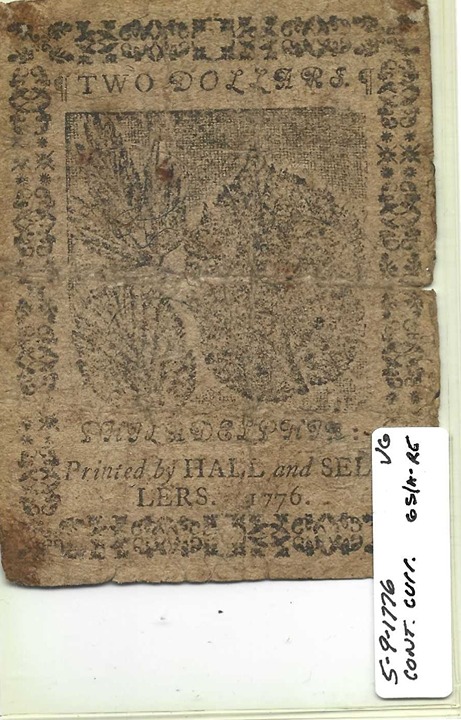 ¶ TWO DOLLARS. ¶
PHILADELPHIA:
Printed by HALL and SEL
LERS. 1776.
5-9-1776 VG
CONT. CURR.